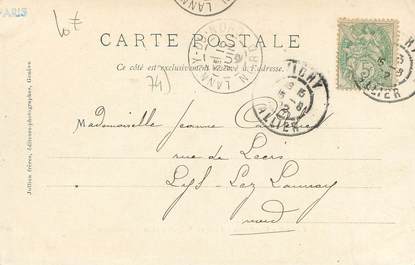 PARIS
CARTE POSTALE
Ce côté est exclusivement réservé à l'adresse.
74)
ALLIER
ALLIER
Mademoiselle Jeanne
rue de Leers
Lys-Lez-Lannoy
nord
Jullien frères, éditeurs-photographes, Genève